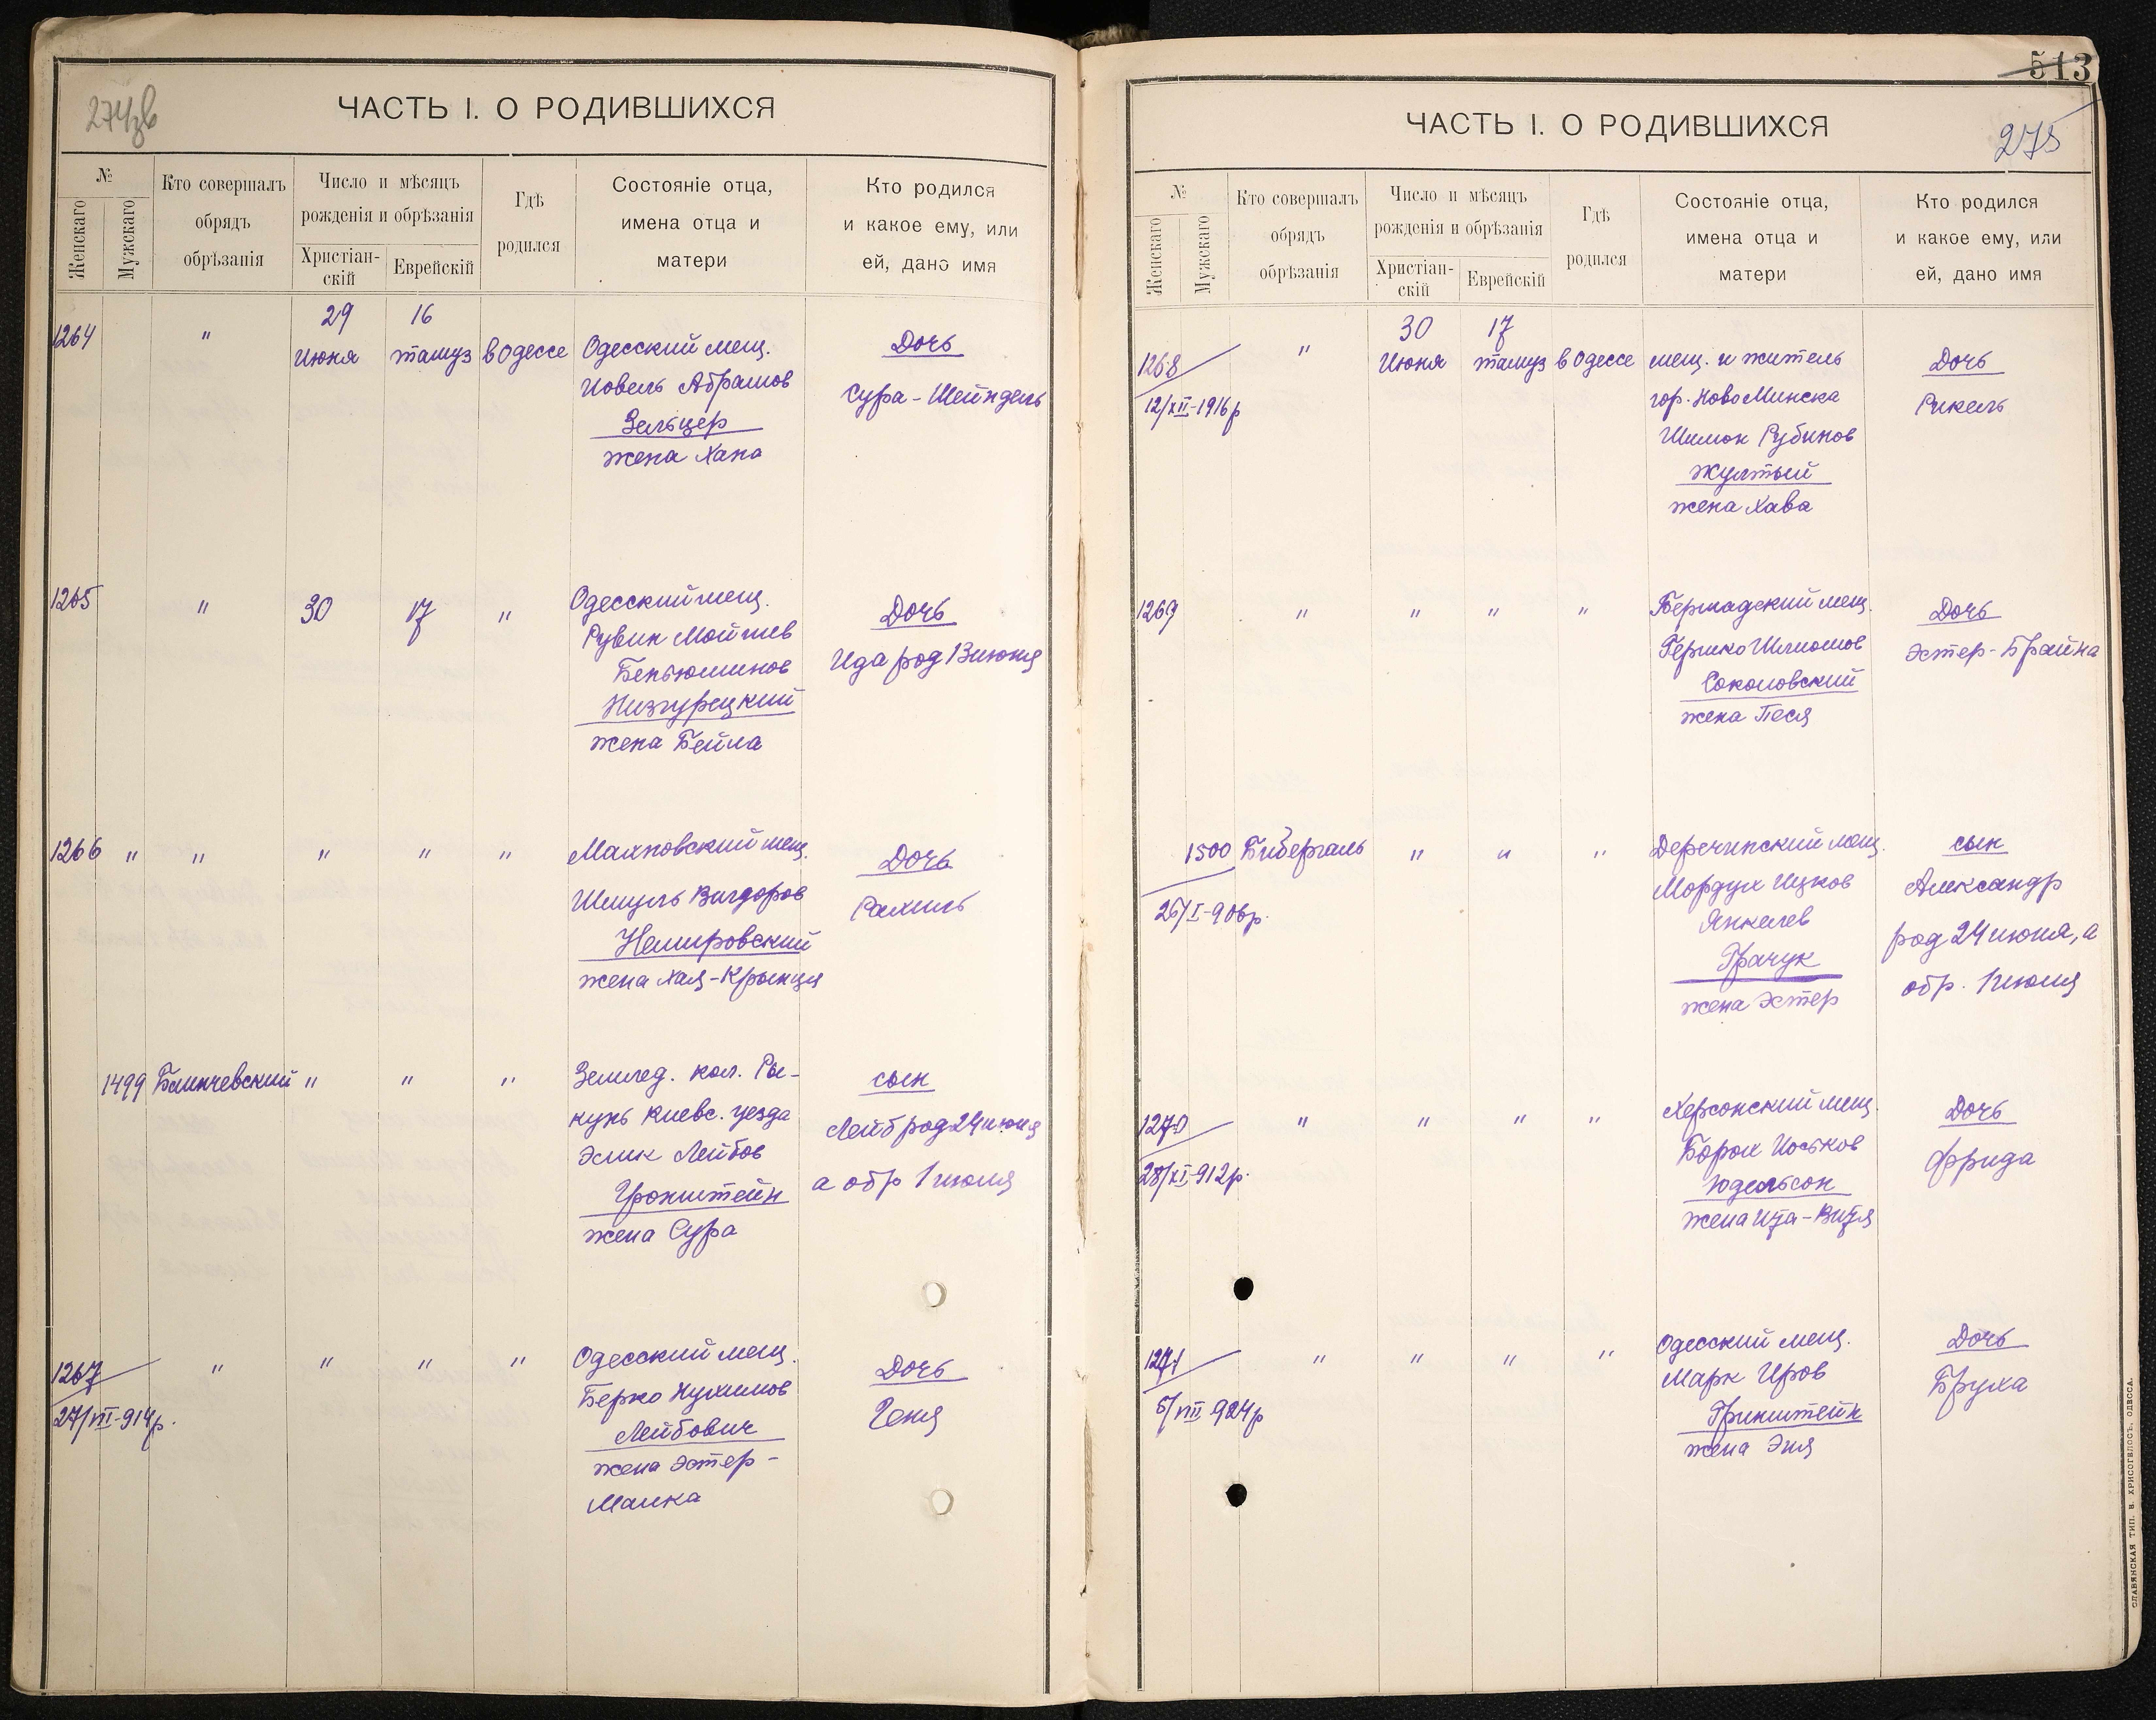 274зв
ЧАСТЬ I. О РОДИВШИХСЯ
№
Женскаго
Мужскаго
Кто совершалъ
обрядъ
обрѣзанія
Число и мѣсяцъ
рожденія и обрѣзанія
Христіан-
скій
Еврейскій
Гдѣ
родился
Состояніе отца,
имена отца и
матери
Кто родился
и какое ему, или
ей, дано имя
1264 " 29 Июня 16 тамуз в Одессе
Одесский мещ.
Иовель Абрамов
Зельцер
жена Хана
Дочь
Сура-Шейндель
1265 " 30 17 "
Одесский мещ.
Рувин Мойшев
Беньюминов
Низгурецкий
жена Бейла
Дочь
Ида род 13 июня
1266 " " " " "
Махновский мещ.
Шмуль Вигдоров
Немировский
жена Хая-Крынця
Дочь
Рахиль
1499 Блинчевский " " "
Землед. кол. Ры-
кунь Киевс. уезда
Эслик Лейбов
Гронштейн
жена Сура
сын
Лейб род 24 июня
а обр 1 июля
1267
27/VII-914р.
" " " "
Одесский мещ.
Берко Нухимов
Лейбович
жена Эстер-
Малка
Дочь
Геня
513
ЧАСТЬ I. О РОДИВШИХСЯ
275
№
Женскаго
Мужскаго
Кто совершалъ
обрядъ
обрѣзанія
Число и мѣсяцъ
рожденія и обрѣзанія
Христіан-
скій
Еврейскій
Гдѣ
родился
Состояніе отца,
имена отца и
матери
Кто родился
и какое ему, или
ей, дано имя
1268
12/XII-1916р
" 30 Июня 17 тамуз в Одессе
мещ. и житель
гор. Ново Минска
Шимон Рубинов
Жултый
жена Хава
Дочь
Рикель
1269 " " " "
Бершадский мещ.
Гершко Шлиомов
Соколовский
жена Песя
Дочь
Эстер-Брайна
1500 Бибергаль " " "
26/I-906р.
Деречинский мещ.
Мордух Ицков
Янкелев
Грачук
жена Эстер
сын
Александр
род 24 июня, а
обр. 1 июля
1270
28/XI-912р.
" " " "
Херсонский мещ.
Борох Иоськов
Юдельсон
жена Ита-Витя
Дочь
Фрида
1271
6/VIII 924р
" " " "
Одесский мещ.
Марк Иров
Гринштейн
жена Эня
Дочь
Бруха
СЛАВЯНСКАЯ ТИП. Н. ХРИСОГЕЛОСЪ, ОДЕССА.